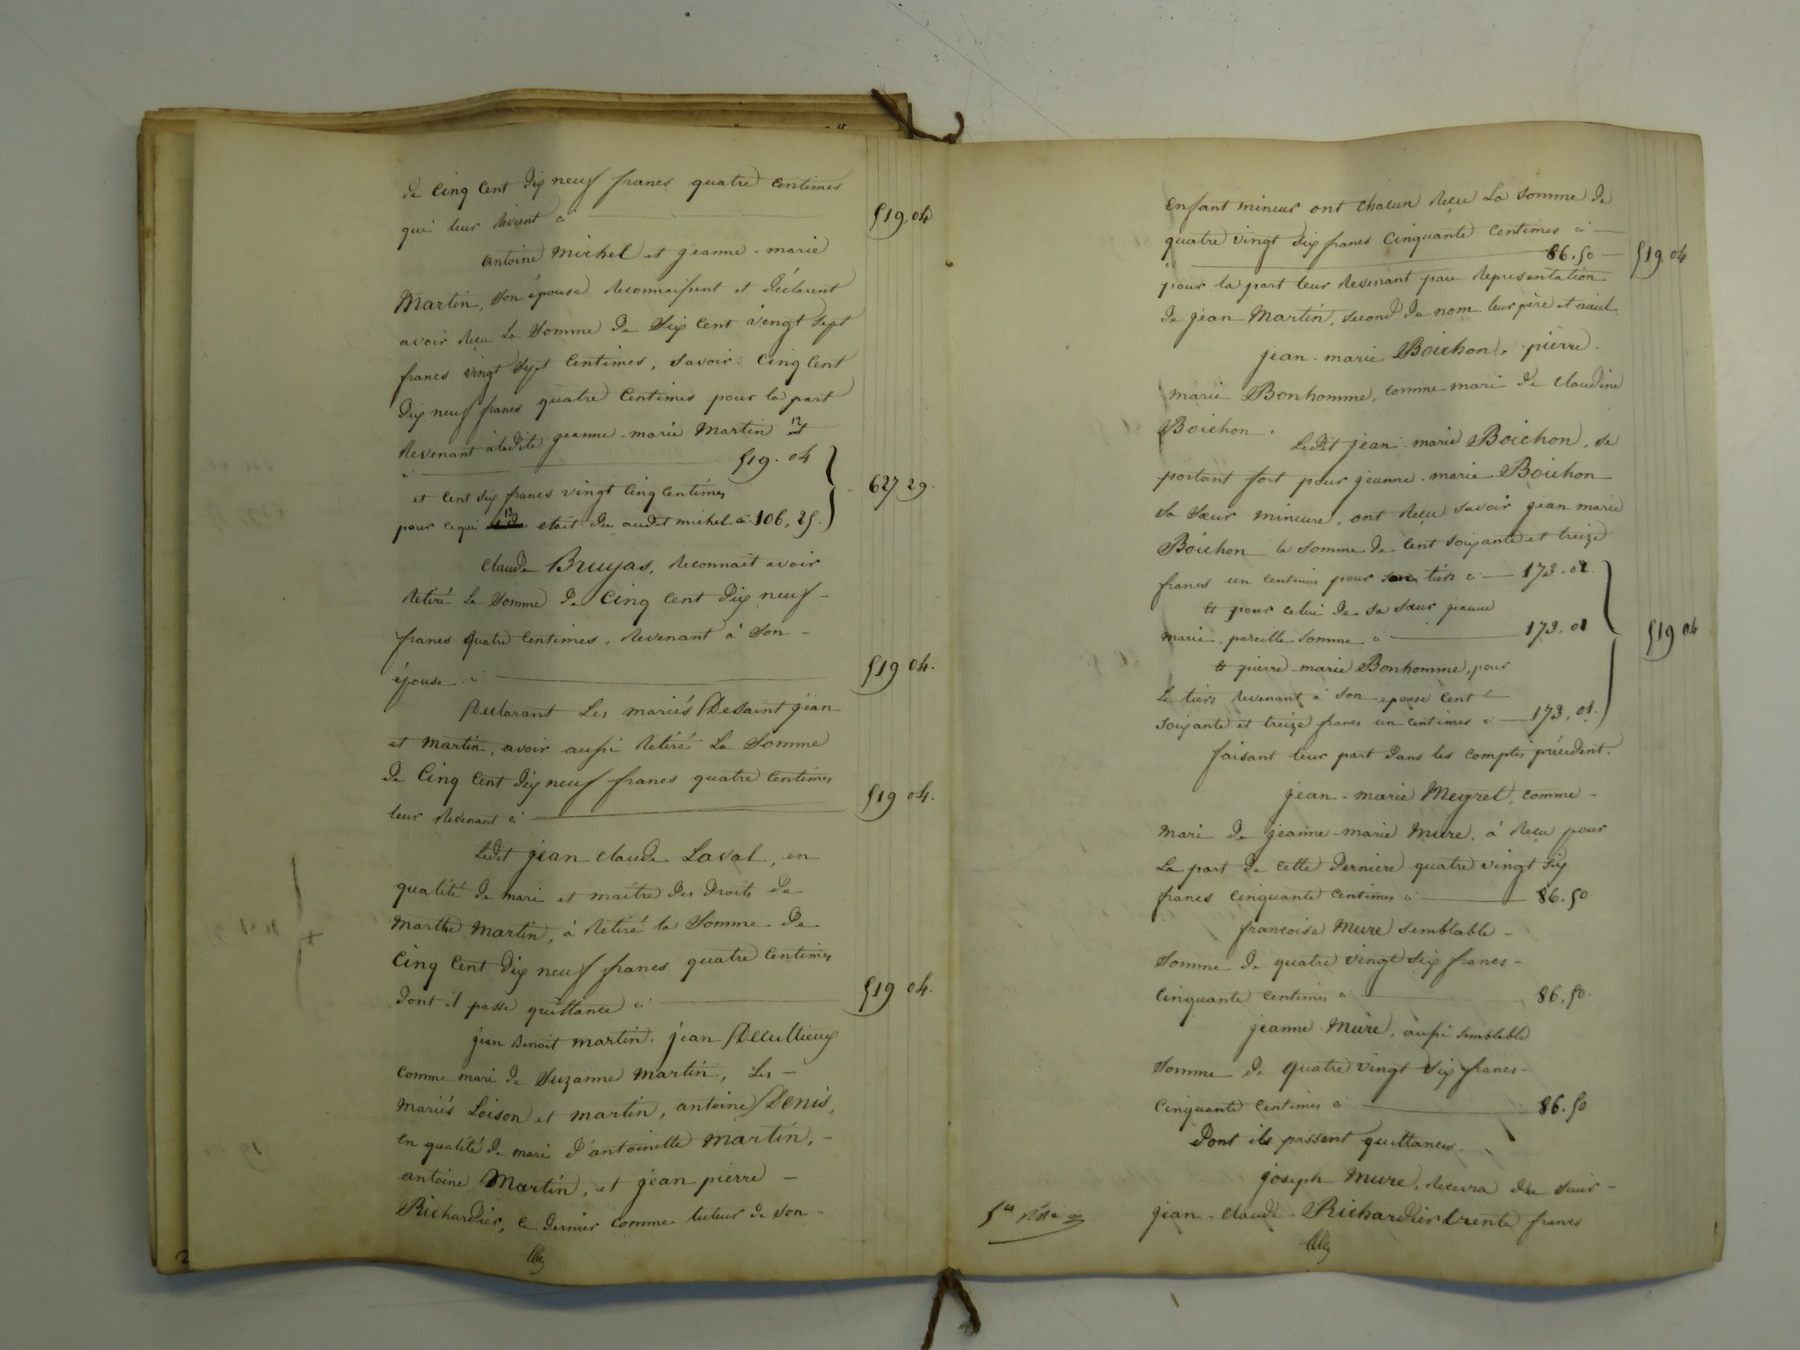 de Cinq Cent dix neuf francs quatre Centimes
qui leur revient ci 519.04
antoine Michel et jeanne-marie
Martin, son épouse reconnaissent et déclarent
avoir reçu la Somme de Six Cent vingt Sept
francs vingt Sept Centimes, savoir: Cinq Cent
dix neuf francs quatre Centimes pour la part
Revenant à ladite jeanne-marie Martin
ci 519.04
et Cent six francs vingt Cinq Centimes 627 29.
pour ce qui était du audit michel ci 106,25.
Claude Bruyas, reconnait avoir
retiré la Somme de Cinq Cent dix neuf
francs quatre Centimes, revenant à son
épouse ci 519 04.
Déclarant les mariés Desaint jean
et Martin, avoir aussi retiré la Somme
de Cinq Cent dix neuf francs quatre Centimes
leur revenant ci 519 04.
Ledit jean claude Laval, en
qualité de mari et maitre des droits de
Marthe Martin, à retiré la Somme de
Cinq Cent dix neuf francs quatre Centimes
dont il passe quittance ci 519 04.
jean Benoit martin, jean Decultieux
comme mari de Suzanne Martin, les
mariés Loison et martin, antoine Denis,
en qualité de mari d'antoinette Martin,
antoine Martin, et jean pierre
Richardier, ce dernier comme tuteur de son
enfant mineur ont chacun reçu la Somme de
quatre vingt six francs Cinquante Centimes ci
86.50 519 04
pour la part leur revenant par représentation
de jean Martin, second du nom leur père et aieul.
jean-marie Boichon, pierre
marie Bonhomme, comme mari de claudine
Boichon.
Ledit jean marie Boichon, se
portant fort pour jeanne-marie Boichon
sa sœur mineure, ont reçu savoir jean marie
Boichon la somme de Cent soixante et treize
francs un centimes pour son tiers ci 173.01
Et pour celui de sa sœur jeanne
marie, pareille somme ci 173.01
519 04
Et pierre-marie Bonhomme, pour
le tiers revenant à son epouse Cent
soixante et treize francs un centimes ci 173.01.
faisant leur part dans les comptes précédent.
jean-marie Meyret, comme
mari de jeanne-marie Mure, à reçu pour
la part de cette dernière quatre vingt six
francs cinquante centimes ci 86.50
francoise Mure semblable
somme de quatre vingt six francs
Cinquante centimes ci 86.50.
jeanne Mure, aussi semblable
somme de quatre vingt six francs
Cinquante Centimes ci 86.50
dont ils passent quittances.
joseph Mure, recevra du sieur
jean-claude Richardier trente francs